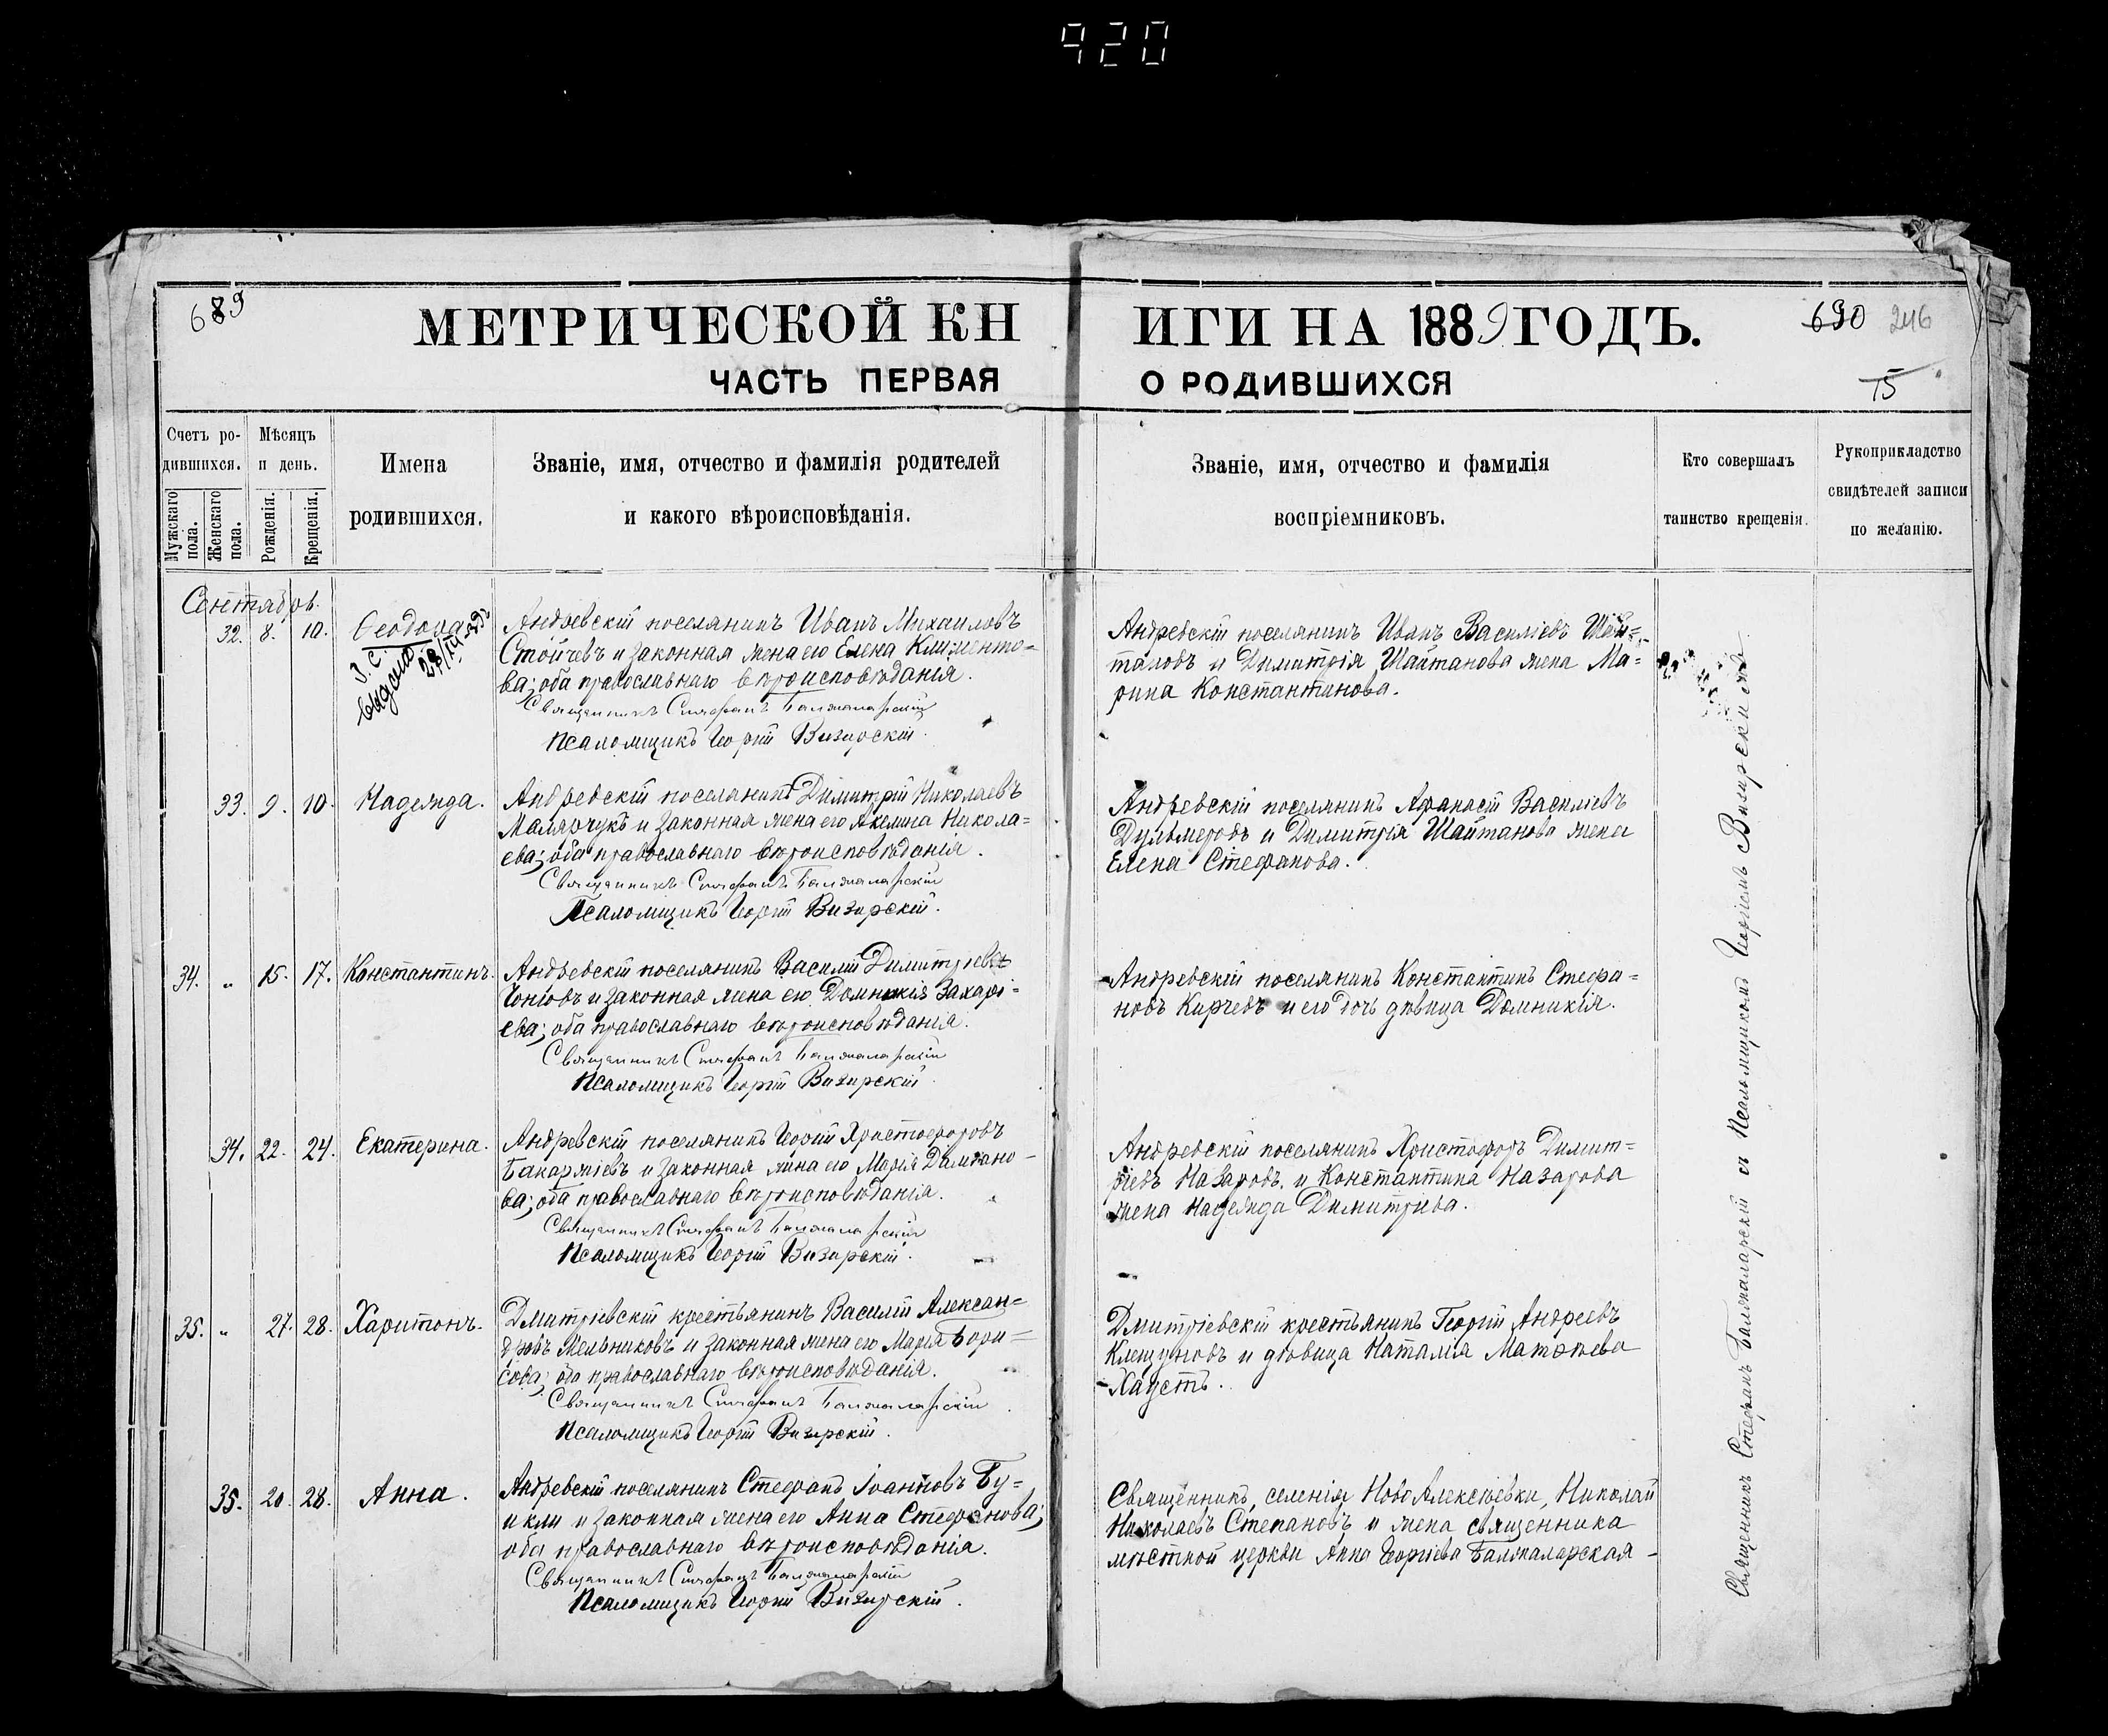 920
689
МЕТРИЧЕСКОЙ КНИГИ НА 1889 ГОДЪ.
690 246
ЧАСТЬ ПЕРВАЯ О РОДИВШИХСЯ
75
Счетъ родившихся.
Мужскаго пола.
Женскаго пола.
Мѣсяцъ и день.
Рожденія.
Крещенія.
Имена родившихся.
Званіе, имя, отчество и фамилія родителей
и какого вѣроисповѣданія.
Званіе, имя, отчество и фамилія
воспріемниковъ.
Кто совершалъ
таинство крещенія.
Рукоприкладство
свидѣтелей записи
по желанію.
Сентябрь.
32. 8. 10. Ѳеодора
З. с.
выдано
Андревскій поселянинъ Иванъ Михаиловъ
Стойчевъ и законная жена его Елена Клименто=
ва; оба православнаго вѣроисповѣданія.
Священникъ Стефанъ Балжаларскій
Псаломщикъ Георгій Визирскій.
Андревскій поселянинъ Иванъ Василіевъ Шай=
тановъ и Димитрія Шайтанова жена Ма=
рина Константинова.
33. 9. 10. Надежда.
Андревскій поселянинъ Димитрій Николаевъ
Малярчукъ и законная жена его Акелина Никола=
ева; оба православнаго вѣроисповѣданія.
Священникъ Стефанъ Балжаларскій
Псаломщикъ Георгій Визирскій.
Андревскій поселянинъ Афанасій Василіевъ
Дульмеровъ и Димитрія Шайтанова жена
Елена Стефанова.
34. „ 15. 17. Константинъ.
Андревскій поселянинъ Василій Димитріевъ
законная жена его Домникія Захарі=
ева; оба православнаго вѣроисповѣданія.
Священникъ Стефанъ Балжаларскій
Псаломщикъ Георгій Визирскій.
Андревскій поселянинъ Константинъ Стефа=
новъ Кирчевъ и его дочь дѣвица Домникія.
34. 22. 24. Екатерина.
Андревскій поселянинъ Георгій Христофоровъ
Бакаржіевъ и законная жена его Марія Даміано=
ва; оба православнаго вѣроисповѣданія.
Священникъ Стефанъ Балжаларскій
Псаломщикъ Георгій Визирскій.
Андревскій поселянинъ Христофоръ Димит=
ріевъ Назаровъ и Константина Назарова
жена Надежда Димитріева.
35. „ 27. 28. Харитонъ.
Дмитріевскій крестьянинъ Василій Алексан=
дровъ Мельниковъ и законная жена его Марія Бори=
сова; оба православнаго вѣроисповѣданія.
Священникъ Стефанъ Балжаларскій
Псаломщикъ Георгій Визирскій.
Дмитріевскій крестьянинъ Георгій Андреевъ
Клещуновъ и дѣвица Наталія Матѳѣева
Хаустъ.
35. 20. 28. Анна.
Андревскій поселянинъ Стефанъ Іоанновъ Бу=
икли и законная жена его Анна Стефанова;
оба православнаго вѣроисповѣданія.
Священникъ Стефанъ Балжаларскій
Псаломщикъ Георгій Визирскій.
Священникъ селенія Ново Алексѣевки, Николай
Николаевъ Степановъ и жена священника
мѣстной церкви Анна Георгіева Балжаларская
Священникъ Стефанъ Балжаларскій съ Псаломщикомъ Георгіемъ Визирскимъ